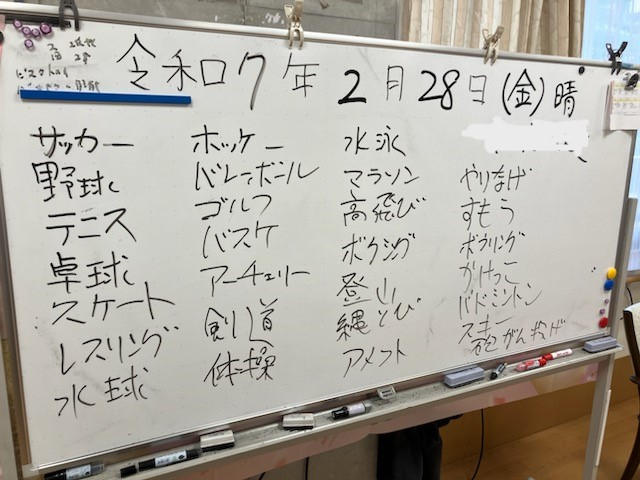 令和7年2月28日(金)晴
サッカー
野球
テニス
卓球
スケート
レスリング
水球
ホッケー
バレーボール
ゴルフ
バスケ
アーチェリー
剣道
体操
水泳
マラソン
高飛び
ボクシング
登山
縄とび
アメフト
やりなげ
すもう
ボウリング
かけっこ
バドミントン
スキー
砲がん投げ